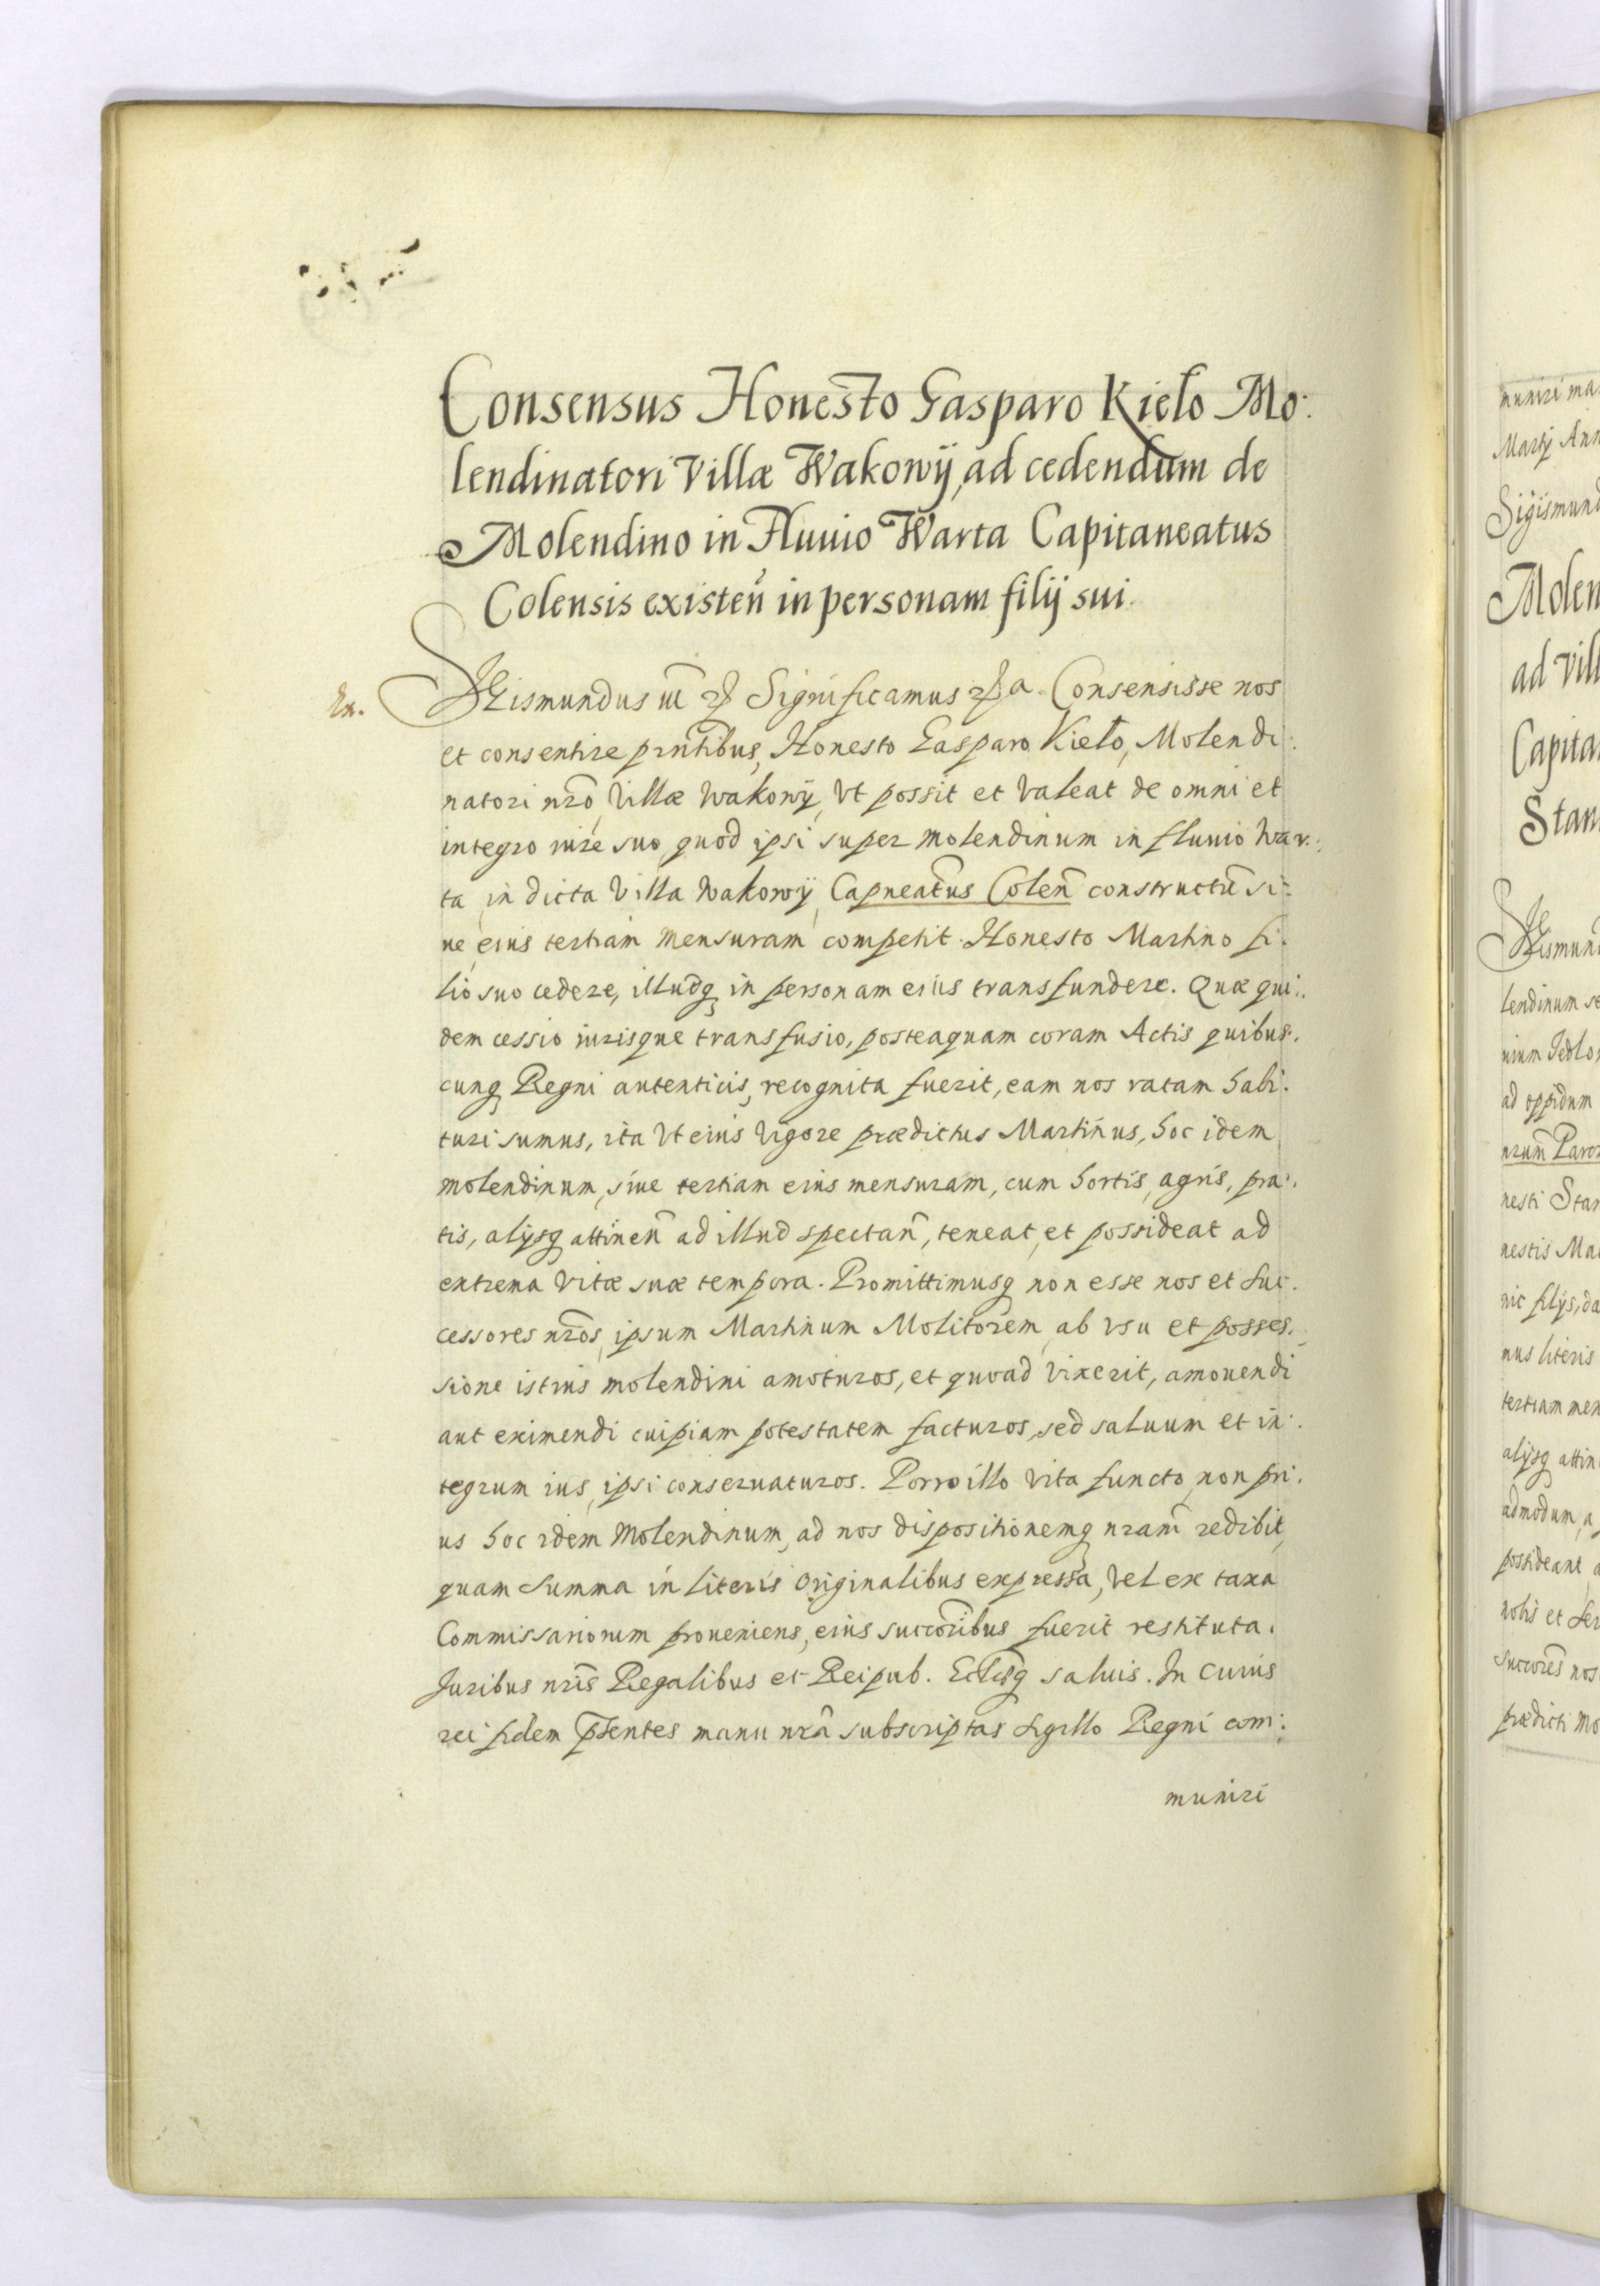 Consensus Honesto Gasparo Kieło Mo:
lendinatori Villæ Wakowÿ, ad cedendum de
Molendino in Fluuio Warta Capitaneatus
Colensis existeñ in personam filÿ sui.
Ex.
Sigismundus III Significamus Consensisse nos
et consentire pñtibus, Honesto Gasparo Kieło, Molendi:
natori nr̃o Villæ Wakowÿ, Vt possit et Valeat de omni et
integro iure suo quod ipsi super Molendinum in fluuio War:
ta, in dicta Villa Wakowÿ, Capneat̃us Coleñ constructũ si:
ue eius tertiam Mensuram competit Honesto Martino fi:
lio suo cedere, illudq̨ in personam eius transfundere. Quæ qui:
dem cessio iurisque transfusio, posteaquam coram Actis quibus:
cunq̨ Regni autenticis, recognita fuerit, eam nos ratam habi:
turi sumus, ita Vt eius Vigore prædictus Martinus, hoc idem
Molendinum, siue tertiam eius mensuram, cum hortis, agris, pra:
tis, alÿsq̨ attineñ ad illud spectañ, teneat, et possideat ad
extrema Vitæ suæ tempora. Promittimusq̨ non esse nos et Suc:
cessores nr̃os, ipsum Martinum Molitorem, ab Vsu et posses:
sione istius molendini amoturos, et quoad Vixerit, amouendi
aut eximendi cuipiam potestatem facturos, sed saluum et in:
tegrum ius, ipsi conseruaturos. Porro illo Vita functo, non pri:
us hoc idem Molendinum, ad nos dispositionemq̨ nram̃ redibit,
quam Summa in literis Originalibus expressa, Vel ex taxa
Commissariorum proueniens, eius succor̃ibus fuerit restituta.
Juribus nr̃is Regalibus et Reipub. Eccl̃isq̨ saluis. In Cuius
rei fidem p̃sentes manu nr̃a subscriptas Sigillo Regni com:
muniri
muniri ma
Martÿ Ann
Sigismund
Molen
ad Vill
Capita
Stan
Sigismund
lendinum se
ad oppidum
nesti Stan
nestis Ma
nus literis
tertiam men
alÿsq̨ attin
admodum, a
possideant, a
nobis et Ser
succor̃es nos
prædicti Mo